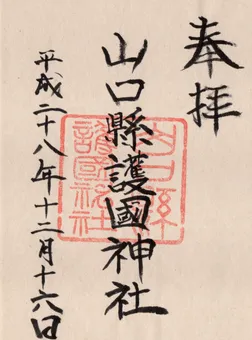 奉拝
山口縣護國神社
山口縣護國神社
平成二十八年十二月十六日